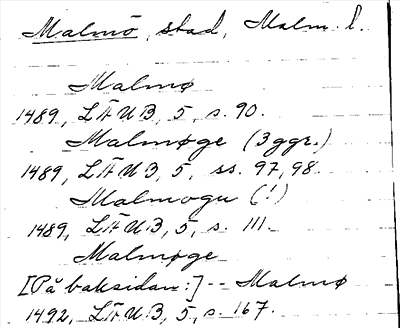 Malmö, stad, Malm. l.
Malmø
1489, LÄUB, 5, s. 90.
Malmøge (3 ggr.)
1489, LÄUB, 5, ss. 97, 98.
Malmogu (!)
1489, LÄUB, 5, s. 111.
Malmøge
[På baksidan:] -- Malmø
1492, LÄUB, 5, s. 167.